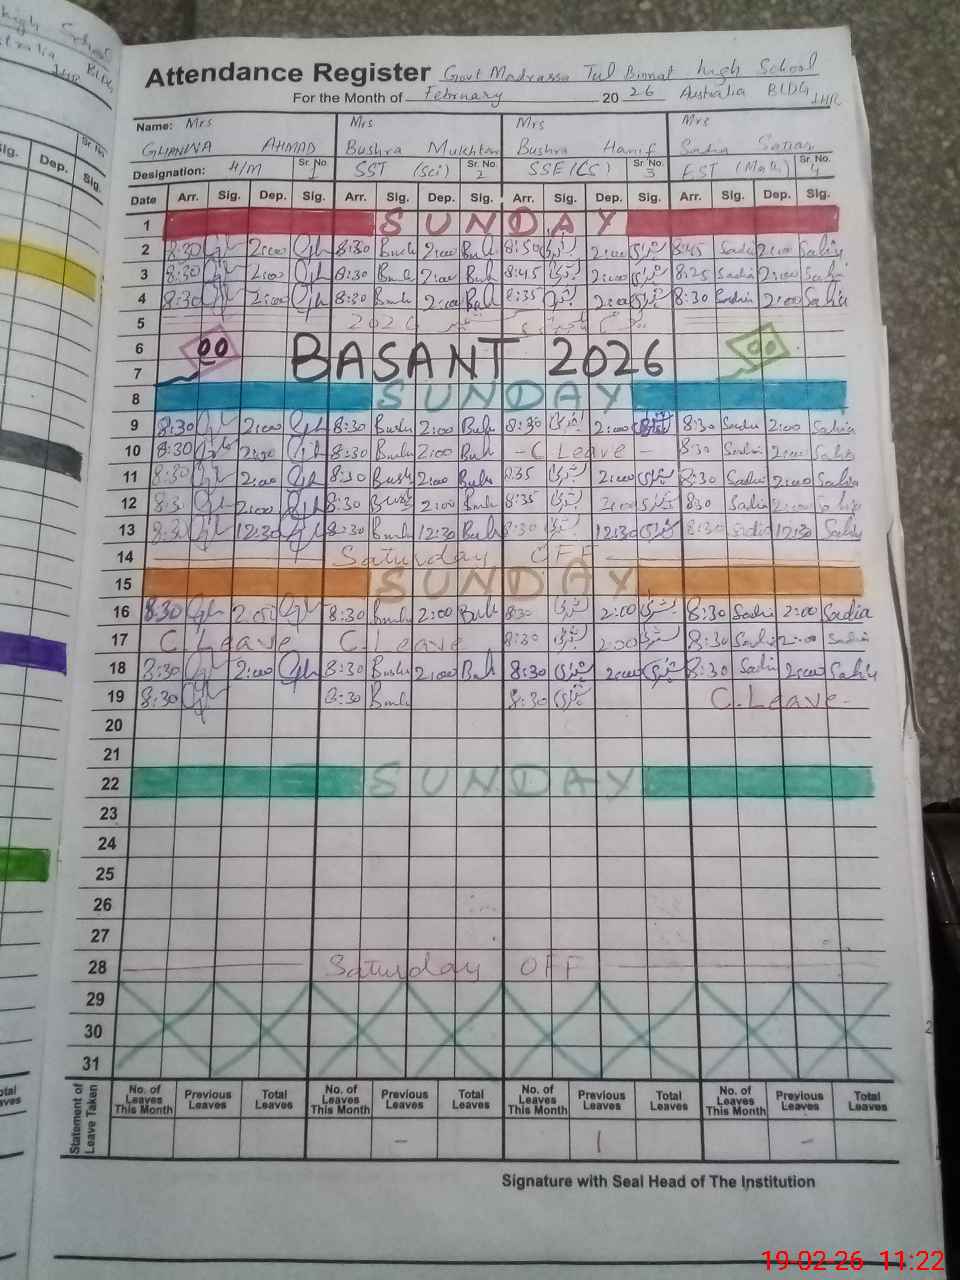 Attendance Register Govt Madrassa Tul Binnat high School
For the Month of February 20 26 Australia BLDG LHR
Name: Mrs Mrs Mrs Mrs
AHMAD Bushra Mukhtar Bushra Hanif Sadia
Designation: H/M Sr. No. 1 SST (Sci) Sr. No. 2 SSE (CS) Sr. No. 3 EST (Math) Sr. No. 4
Date Arr. Sig. Dep. Sig. Arr. Sig. Dep. Sig. Arr. Sig. Dep. Sig. Arr. Sig. Dep. Sig.
1 SUNDAY
2 8:30 2:00 8:30 Bush 2:00 Buh 8:50 بشریٰ 2:00 بشریٰ 8:45 Sadia 2:00 Sadia
3 8:30 2:00 8:30 Bush 2:00 Buh 8:45 بشریٰ 2:00 بشریٰ 8:25 Sadia 2:00 Sadia
4 8:30 2:00 8:30 Bush 2:00 Buh 8:35 بشریٰ 2:00 بشریٰ 8:30 Sadia 2:00 Sadia
5 2026
6
BASANT 2026
7
8 SUNDAY
9 8:30 2:00 8:30 Bush 2:00 Buh 8:30 بشریٰ 2:00 بشریٰ 8:30 Sadia 2:00 Sadia
10 8:30 2:00 8:30 Bush 2:00 Buh - C Leave - 8:30 Sadia 2:00 Sadia
11 8:30 2:00 8:30 Bush 2:00 Buh 8:35 بشریٰ 2:00 بشریٰ 8:30 Sadia 2:00 Sadia
12 8:30 2:00 8:30 Bush 2:00 Buh 8:35 بشریٰ 2:00 بشریٰ 8:30 Sadia 2:00 Sadia
13 8:30 12:30 8:30 Bush 12:30 Buh 8:30 بشریٰ 12:30 بشریٰ 8:30 Sadia 12:30 Sadia
14 Saturday OFF
15 SUNDAY
16 8:30 2:00 8:30 Bush 2:00 Buh 8:30 بشریٰ 2:00 بشریٰ 8:30 Sadia 2:00 Sadia
17 C. Leave C. Leave 8:30 بشریٰ 2:00 بشریٰ 8:30 Sadia 2:00 Sadia
18 8:30 2:00 8:30 Bush 2:00 Buh 8:30 بشریٰ 2:00 بشریٰ 8:30 Sadia 2:00 Sadia
19 8:30 8:30 Bush 8:30 بشریٰ C. Leave -
20
21
22 SUNDAY
23
24
25
26
27
28 Saturday OFF
29
30
31
Statement of Leave Taken No. of Leaves This Month Previous Leaves Total Leaves No. of Leaves This Month Previous Leaves Total Leaves No. of Leaves This Month Previous Leaves Total Leaves No. of Leaves This Month Previous Leaves Total Leaves
- 1 -
Signature with Seal Head of The Institution
19-02-26 11:22